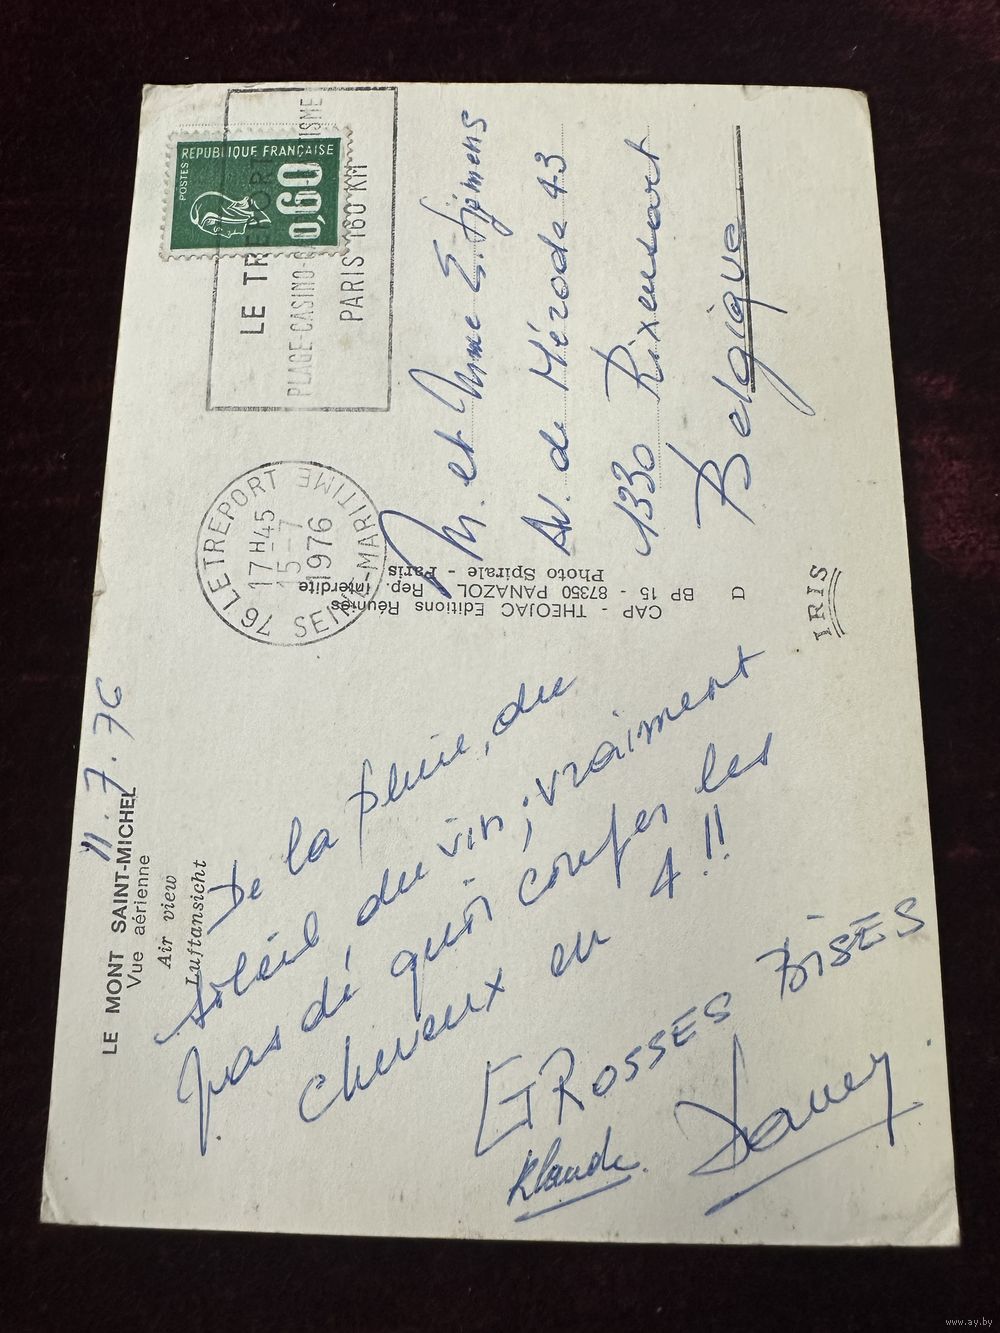 LE MONT SAINT-MICHEL
Vue aérienne
Air view
Luftansicht
11.7.76
De la pluie, du
soleil du vin; vraiment
pas dé quoi couper les
cheveux en 4!!
GROSSES BISES
Klaude.
CAP - THEOJAC Editions Réunies
BP 15 - 87350 PANAZOL Rep. interdite
Photo Spirale - Paris
D
IRIS
76 LE TREPORT
17H45
15-7
1976
SEINE-MARITIME
LE TREPORT
PLAGE-CASINO-
ISME
PARIS 160 KM
POSTES
REPUBLIQUE FRANÇAISE
0,60
M. et Mme E.
Av. de Mérode 43
1330 Rixensart
Belgique
www.ay.by